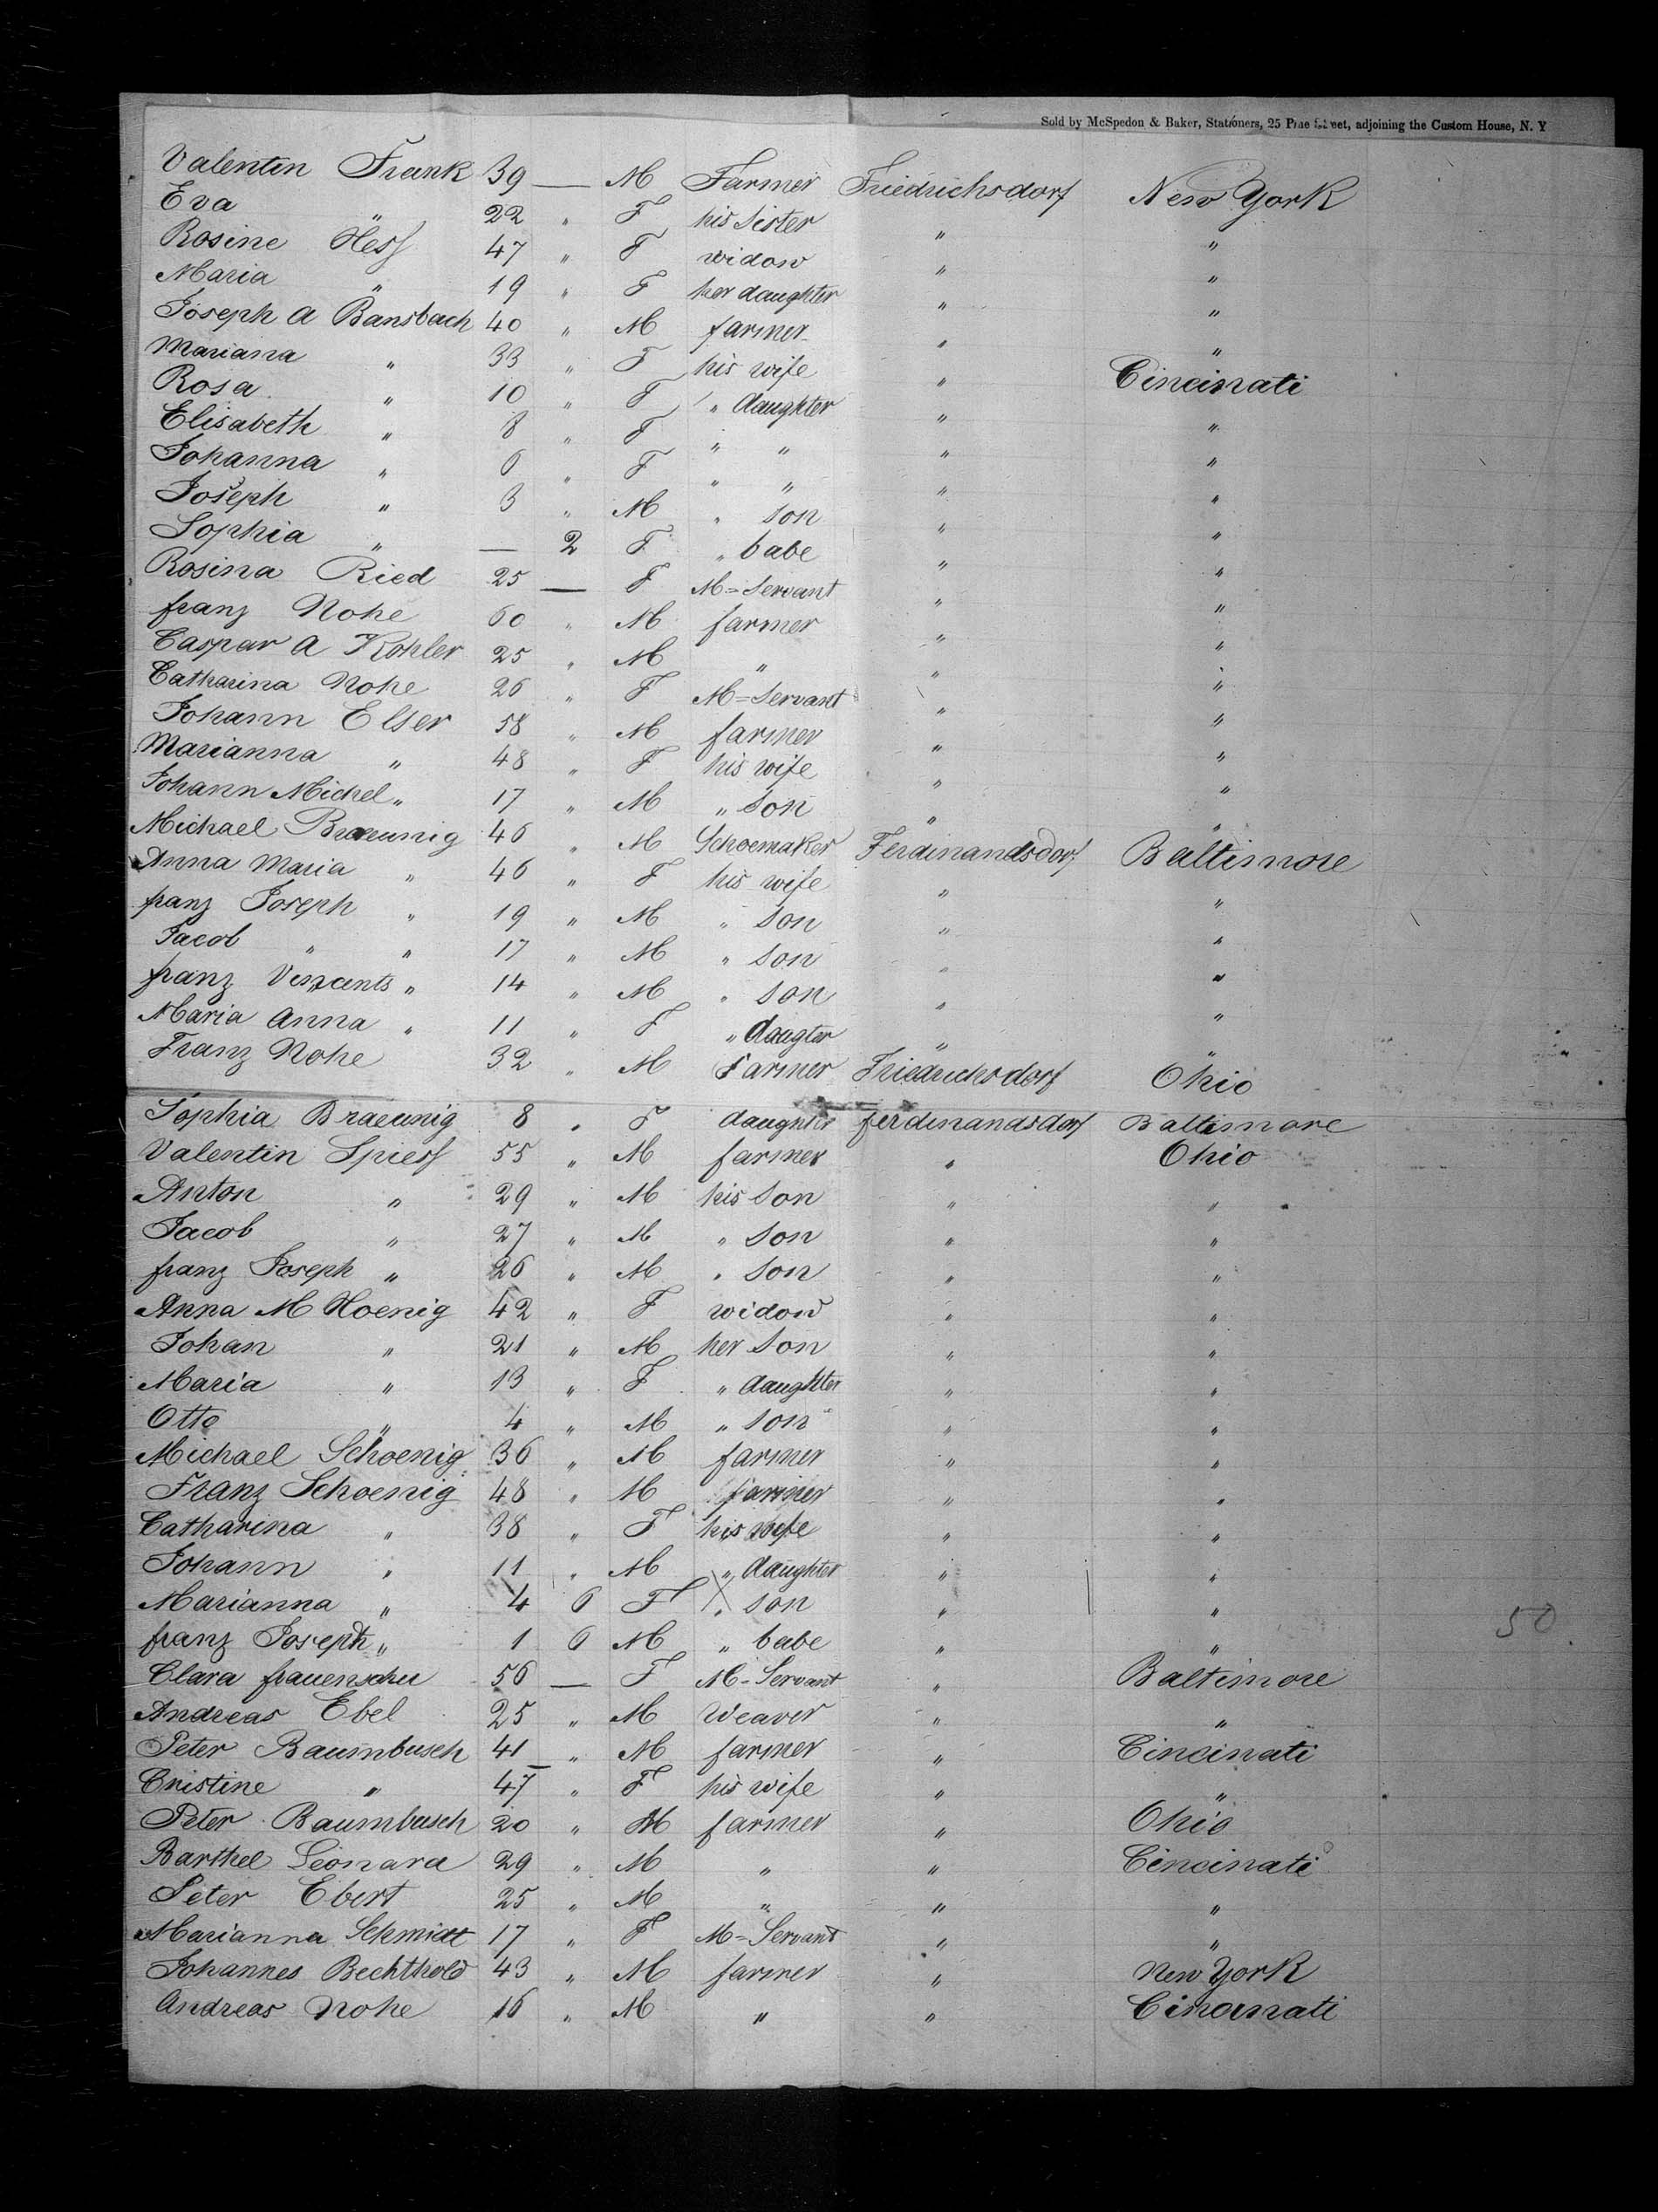 Sold by McSpedon & Baker, Stationers, 25 Pine Street, adjoining the Custom House, N. Y
Valentin Frank 39 — M Farmer Friedrichsdorf New York
Eva " 22 " F his Sister " "
Rosine Hess 47 " F widow " "
Maria " 19 " F her daughter " "
Joseph A Bansbach 40 " M farmer " "
Mariana " 33 " F his wife " Cincinati
Rosa " 10 " F " daughter " "
Elisabeth " 8 " F " " " "
Johanna " 6 " F " " " "
Joseph " 3 " M " Son " "
Sophia " — 2 F " babe " "
Rosina Ried 25 — F M=Servant " "
franz Nohe 60 " M farmer " "
Caspar A Kohler 25 " M " " "
Catharina Nohe 26 " F M=Servant " "
Johann Elser 58 " M farmer " "
Marianna " 48 " F his wife " "
Johann Michel " 17 " M " Son " "
Michael Braeunig 46 " M Schoemaker Ferdinandsdorf Baltimore
Anna Maria " 46 " F his wife " "
franz Joseph " 19 " M " Son " "
Jacob " " 17 " M " Son " "
franz Vinzents " 14 " M " Son " "
Maria Anna " 11 " F " daugter " "
Franz Nohe 32 " M Farmer Friedrichsdorf Ohio
Sophia Braeunig 8 " F daughter ferdinandsdorf Baltimore
Valentin Spiess 55 " M farmer " Ohio
Anton " 29 " M his Son " "
Jacob " 27 " M " Son " "
franz Joseph " 26 " M " Son " "
Anna M Hoenig 42 " F widow " "
Johan " 21 " M her Son " "
Maria " 13 " F " daughter " "
Otto " 4 " M " Son " "
Michael Schoenig 36 " M farmer " "
Franz Schoenig 48 " M farmer " "
Catharina " 38 " F his wife " "
Johann " 11 " M " daughter " "
Marianna " 4 6 F " son " "
franz Joseph " 1 6 M " babe " "
50
Clara 56 — F M=Servant " Baltimore
Andreas Ebel 25 " M Weaver " "
Peter Baumbusch 41 " M farmer " Cincinati
Cristine " 47 " F his wife " "
Peter Baumbusch 20 " M farmer " Ohio
Barthel Leonard 29 " M " " Cincinati
Peter Ebert 25 " M " " "
Marianna Schmidt 17 " F M=Servant " "
Johannes Bechthold 43 " M farmer " New York
Andreas Nohe 16 " M " " Cincinati